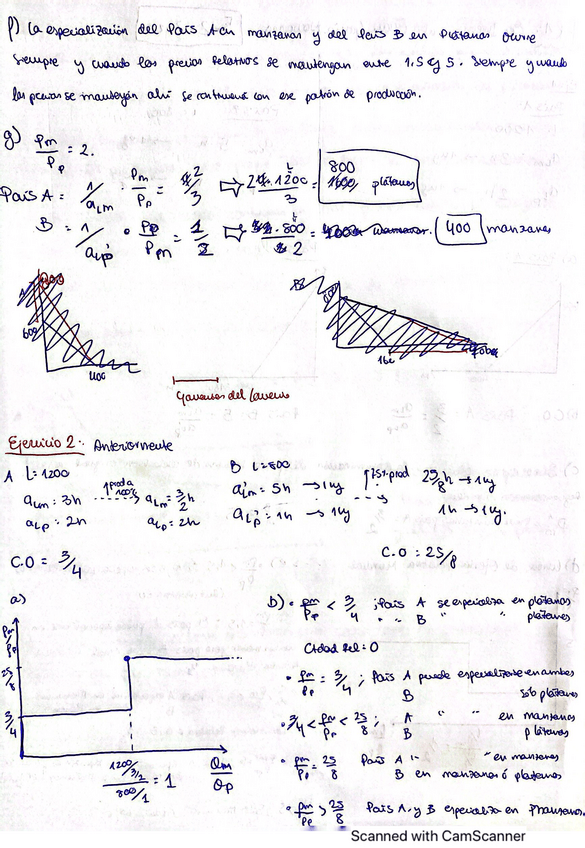 f) La especialización del País A en manzanas y del País B en Plátanos ocurre
siempre y cuando los precios Relativos se mantengan entre 1.5 y 5. Siempre y cuando
los precios se mantengan ahí se continuará con ese patrón de producción.
g) Pm/Pp = 2.
País A = 1/aLm · Pm/Pp = 2/3 ⇒ 2·1200/3 = 800 plátanos
B = 1/aLp · Pp/Pm = 1/2 ⇒ 800/2 = 400 manzanas
600
400
160
Ganancias del Comercio
Ejercicio 2: Anteriormente
A L = 1200 B L = 800
aLm = 3h ↑prod a 100% aLm = 3/2 h a'Lm = 5h → 1kg ↑75% prod 25/8 h → 1kg
aLp = 2h aLp = 2h a'Lp = 1h → 1kg 1h → 1kg.
C.O = 3/4 C.O = 25/8
a)
Pm/Pp
25/8
3/4
1200/3/2 / 800/1 = 1
Qm/Qp
b) • Pm/Pp < 3/4 ; País A se especializa en plátanos
" " B " plátanos
Ctdad Rel = 0
• Pm/Pp = 3/4 ; País A puede especializarse en ambos
B solo plátanos
• 3/4 < Pm/Pp < 25/8 ; A " " en manzanas
B plátanos
• Pm/Pp = 25/8 País A " " en manzanas
B en manzanas ó plátanos
• Pm/Pp > 25/8 País A y B especializa en manzanas.
Scanned with CamScanner